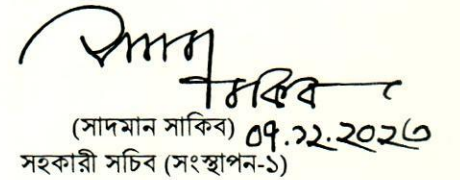 সাকিব
(সাদমান সাকিব) ০৭.১২.২০২৩
সহকারী সচিব (সংস্থাপন-১)